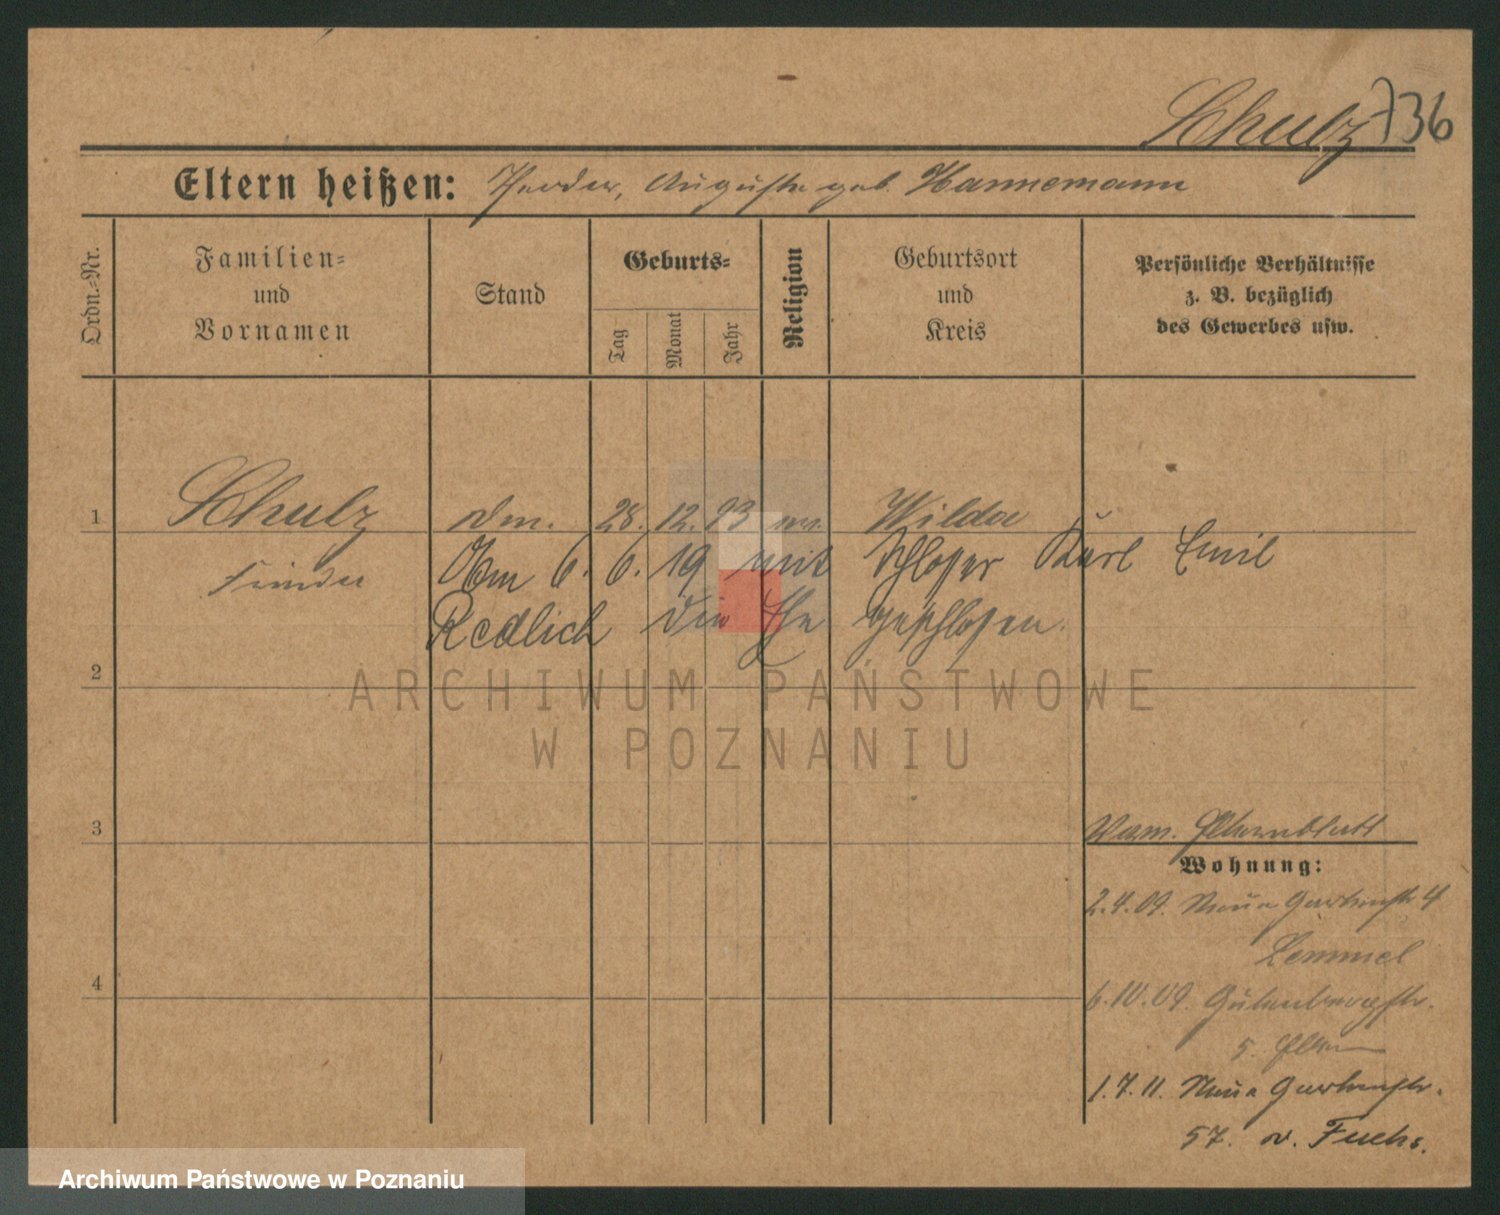 Schulz 736
Eltern heißen: Theodor, Auguste geb. Hannemann
Ordn.-Nr.
Familien-
und
Vornamen
Stand
Geburts-
Tag
Monat
Jahr
Religion
Geburtsort
und
Kreis
Persönliche Verhältnisse
z. B. bezüglich
des Gewerbes usw.
1 Schulz 28. 12. 93 Wilda
Am 6. 6. 19 mit Schlosser Karl Emil
Redlich die Ehe geschlossen.
2
ARCHIWUM PAŃSTWOWE
W POZNANIU
3
Elternblatt
Wohnung:
2.4.09. Neue Gartenstr 4
Lemmel
4
6.10.09. Gutenbergstr.
5. Eltern
1.7.11. Neue Gartenstr.
57. v. Fuchs.
Archiwum Państwowe w Poznaniu